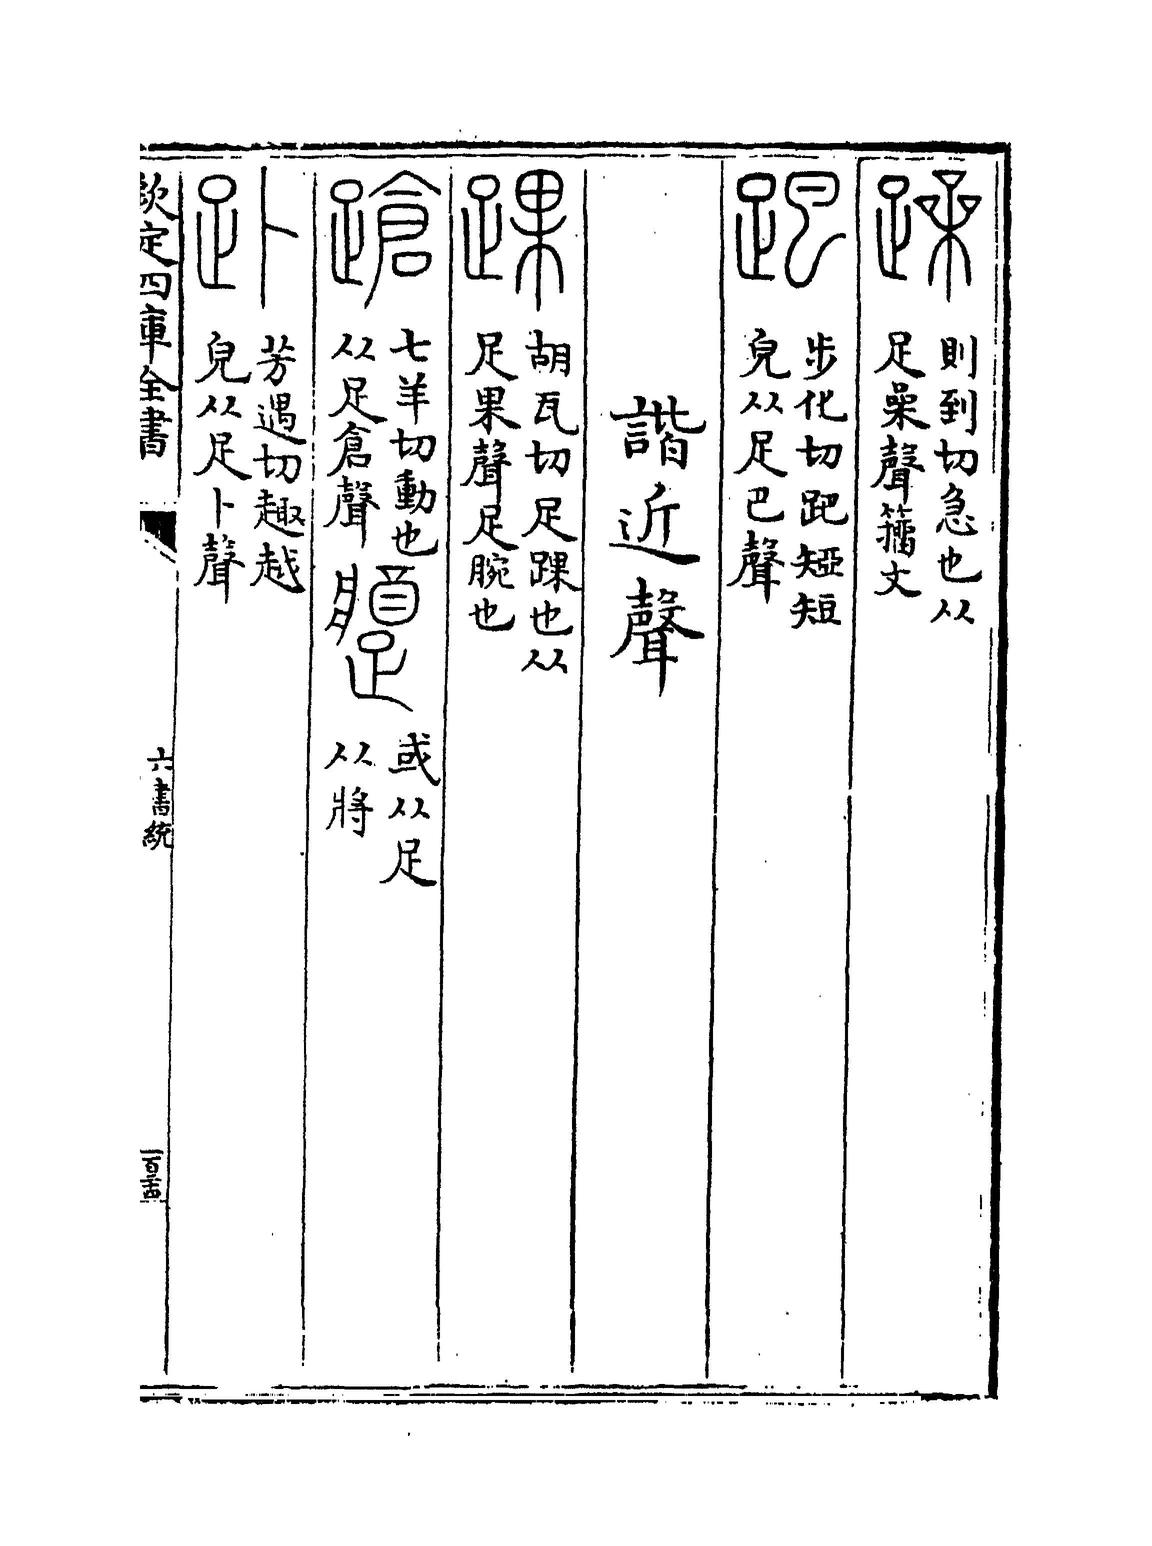 躁 則到切急也从足喿聲籀文
䟦 步化切䟦䂒短皃从足巴聲
諧近聲
踝 胡瓦切足踝也从足果聲足腕也
蹌 七羊切動也从足倉聲 或从足从將
赴 芳遇切趣越皃从足卜聲
欽定四庫全書
六書統